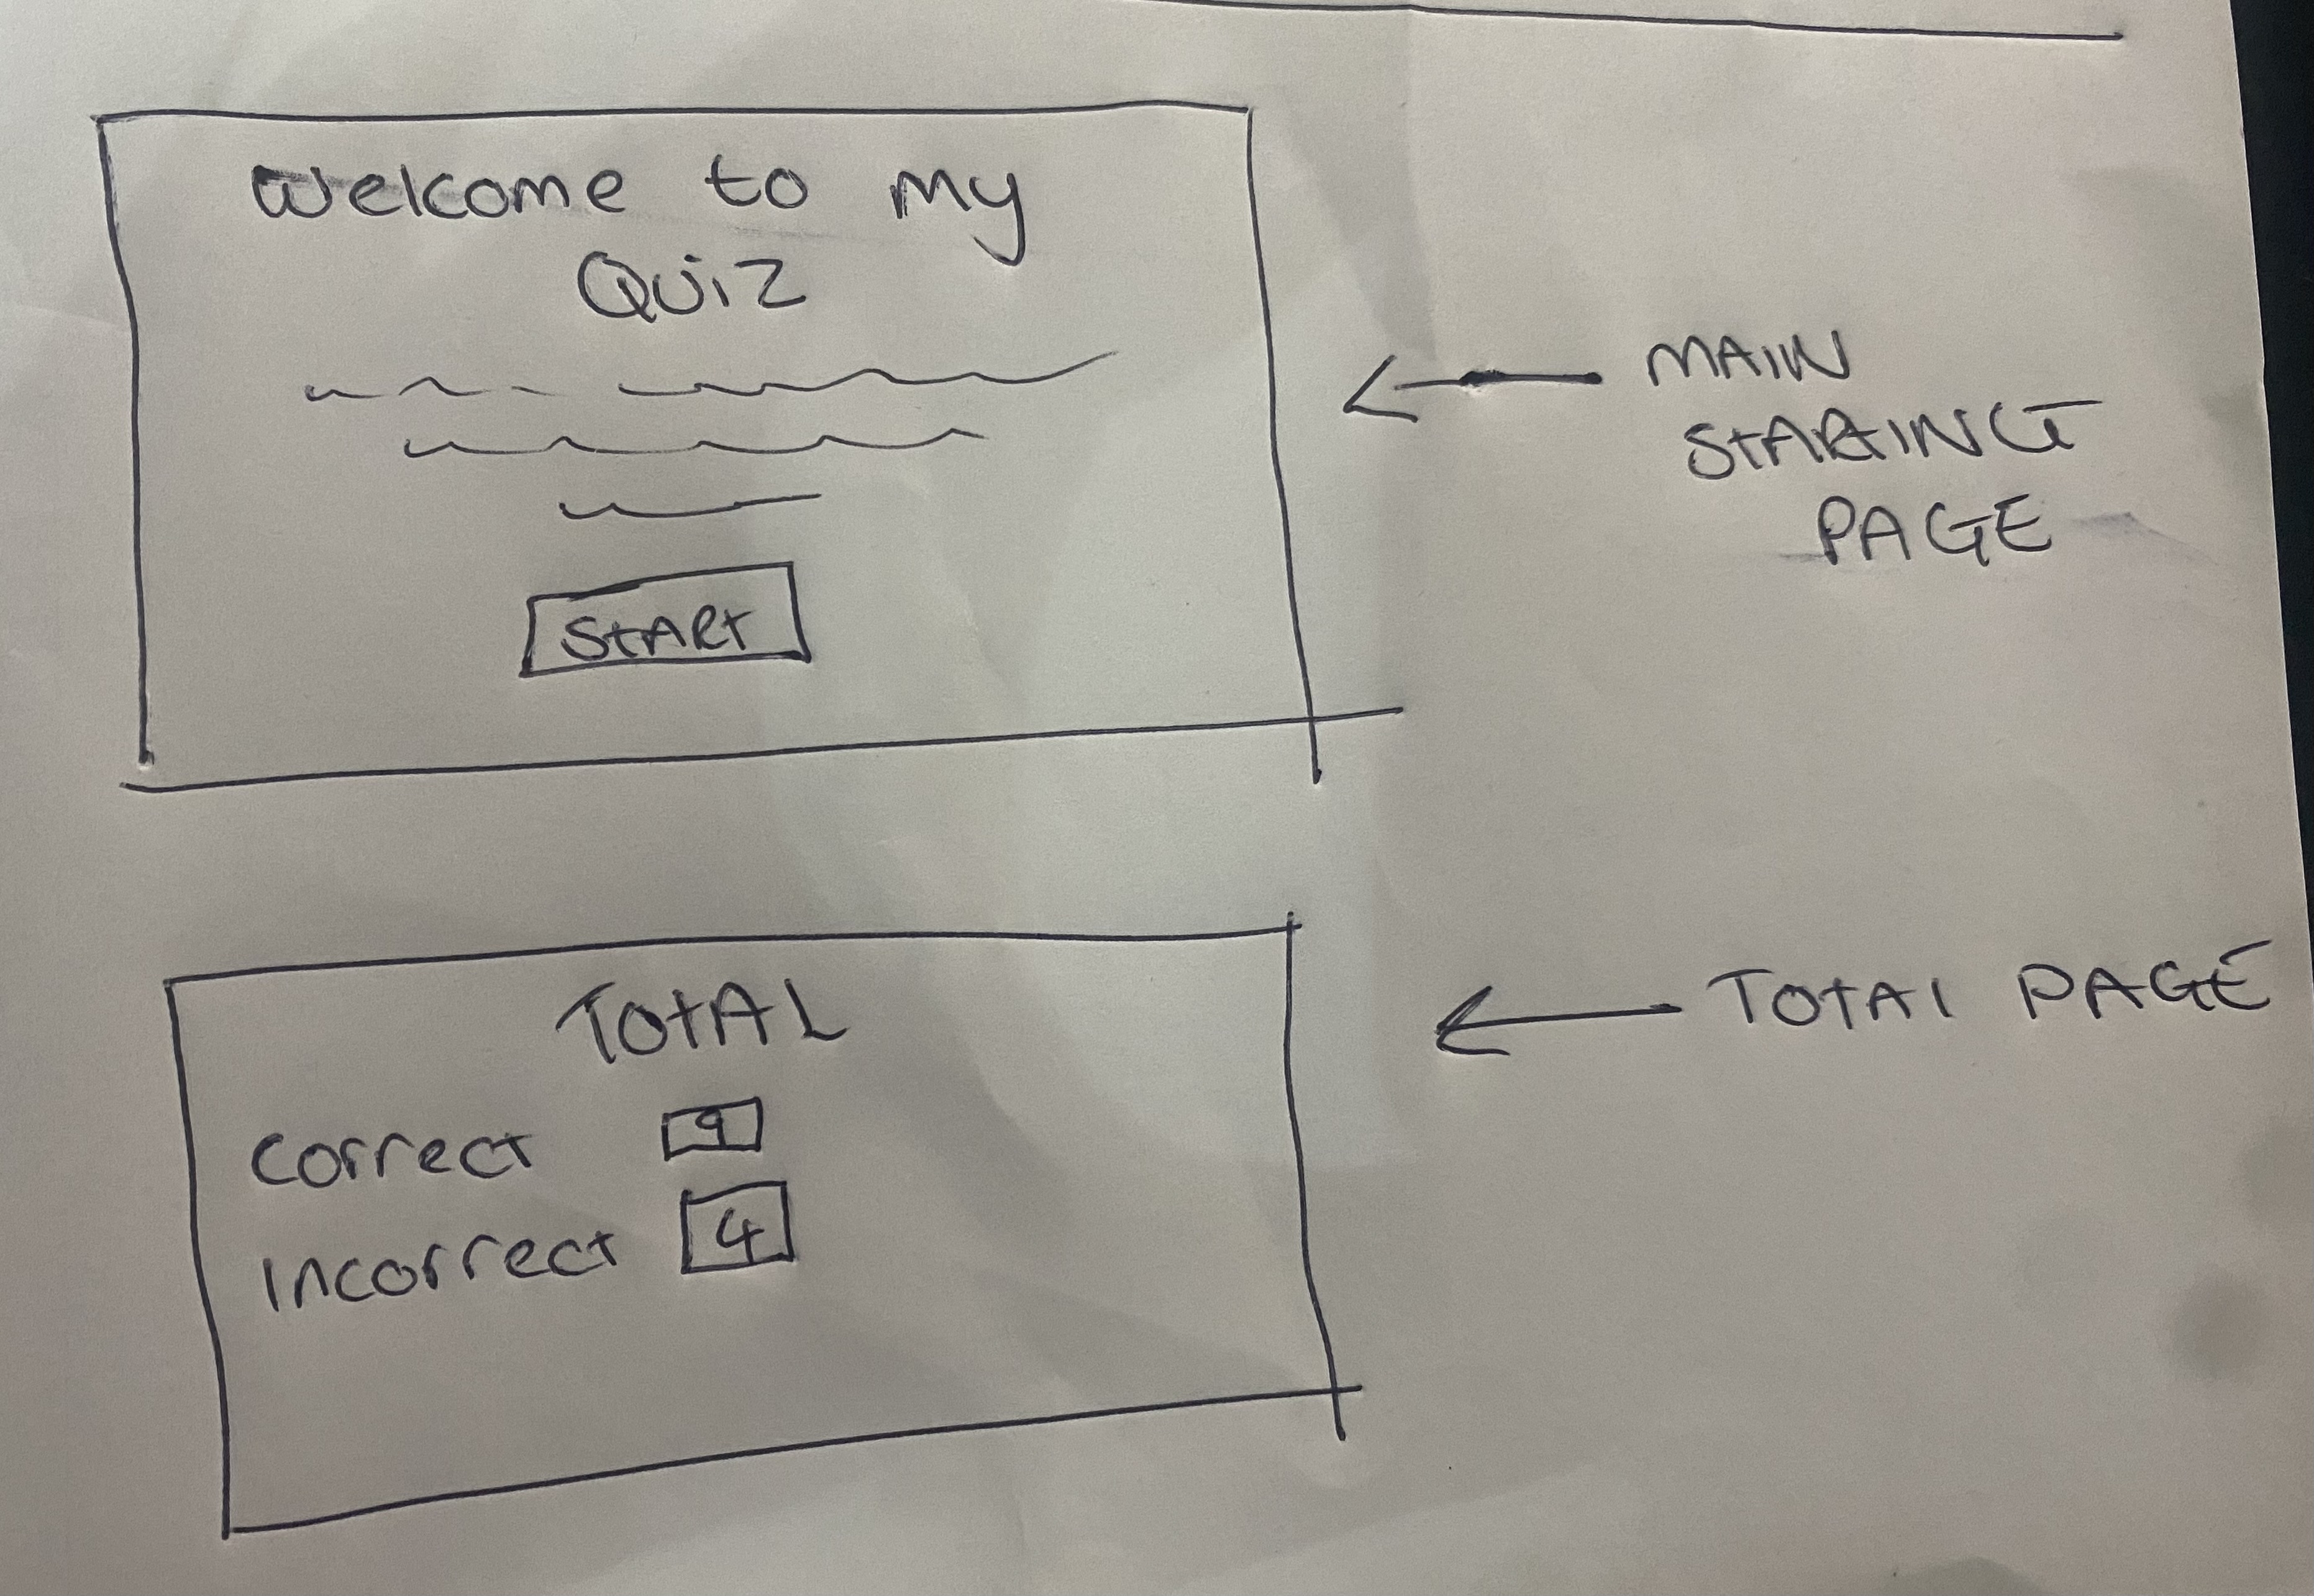 Welcome to my
Quiz
START
MAIN
STARTING
PAGE
TOTAL
Correct 9
Incorrect 4
TOTAL PAGE